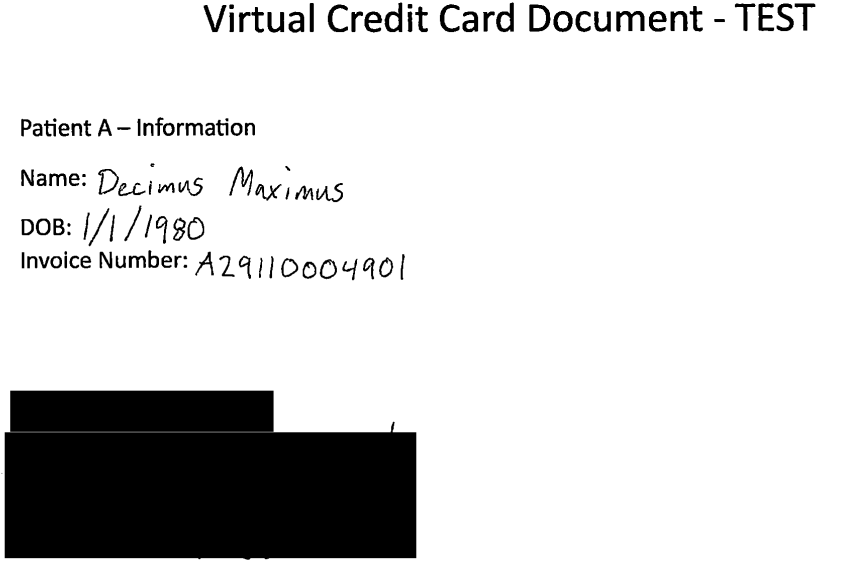 Virtual Credit Card Document - TEST
Patient A – Information
Name: Decimus Maximus
DOB: 1/1/1980
Invoice Number: A29110004901